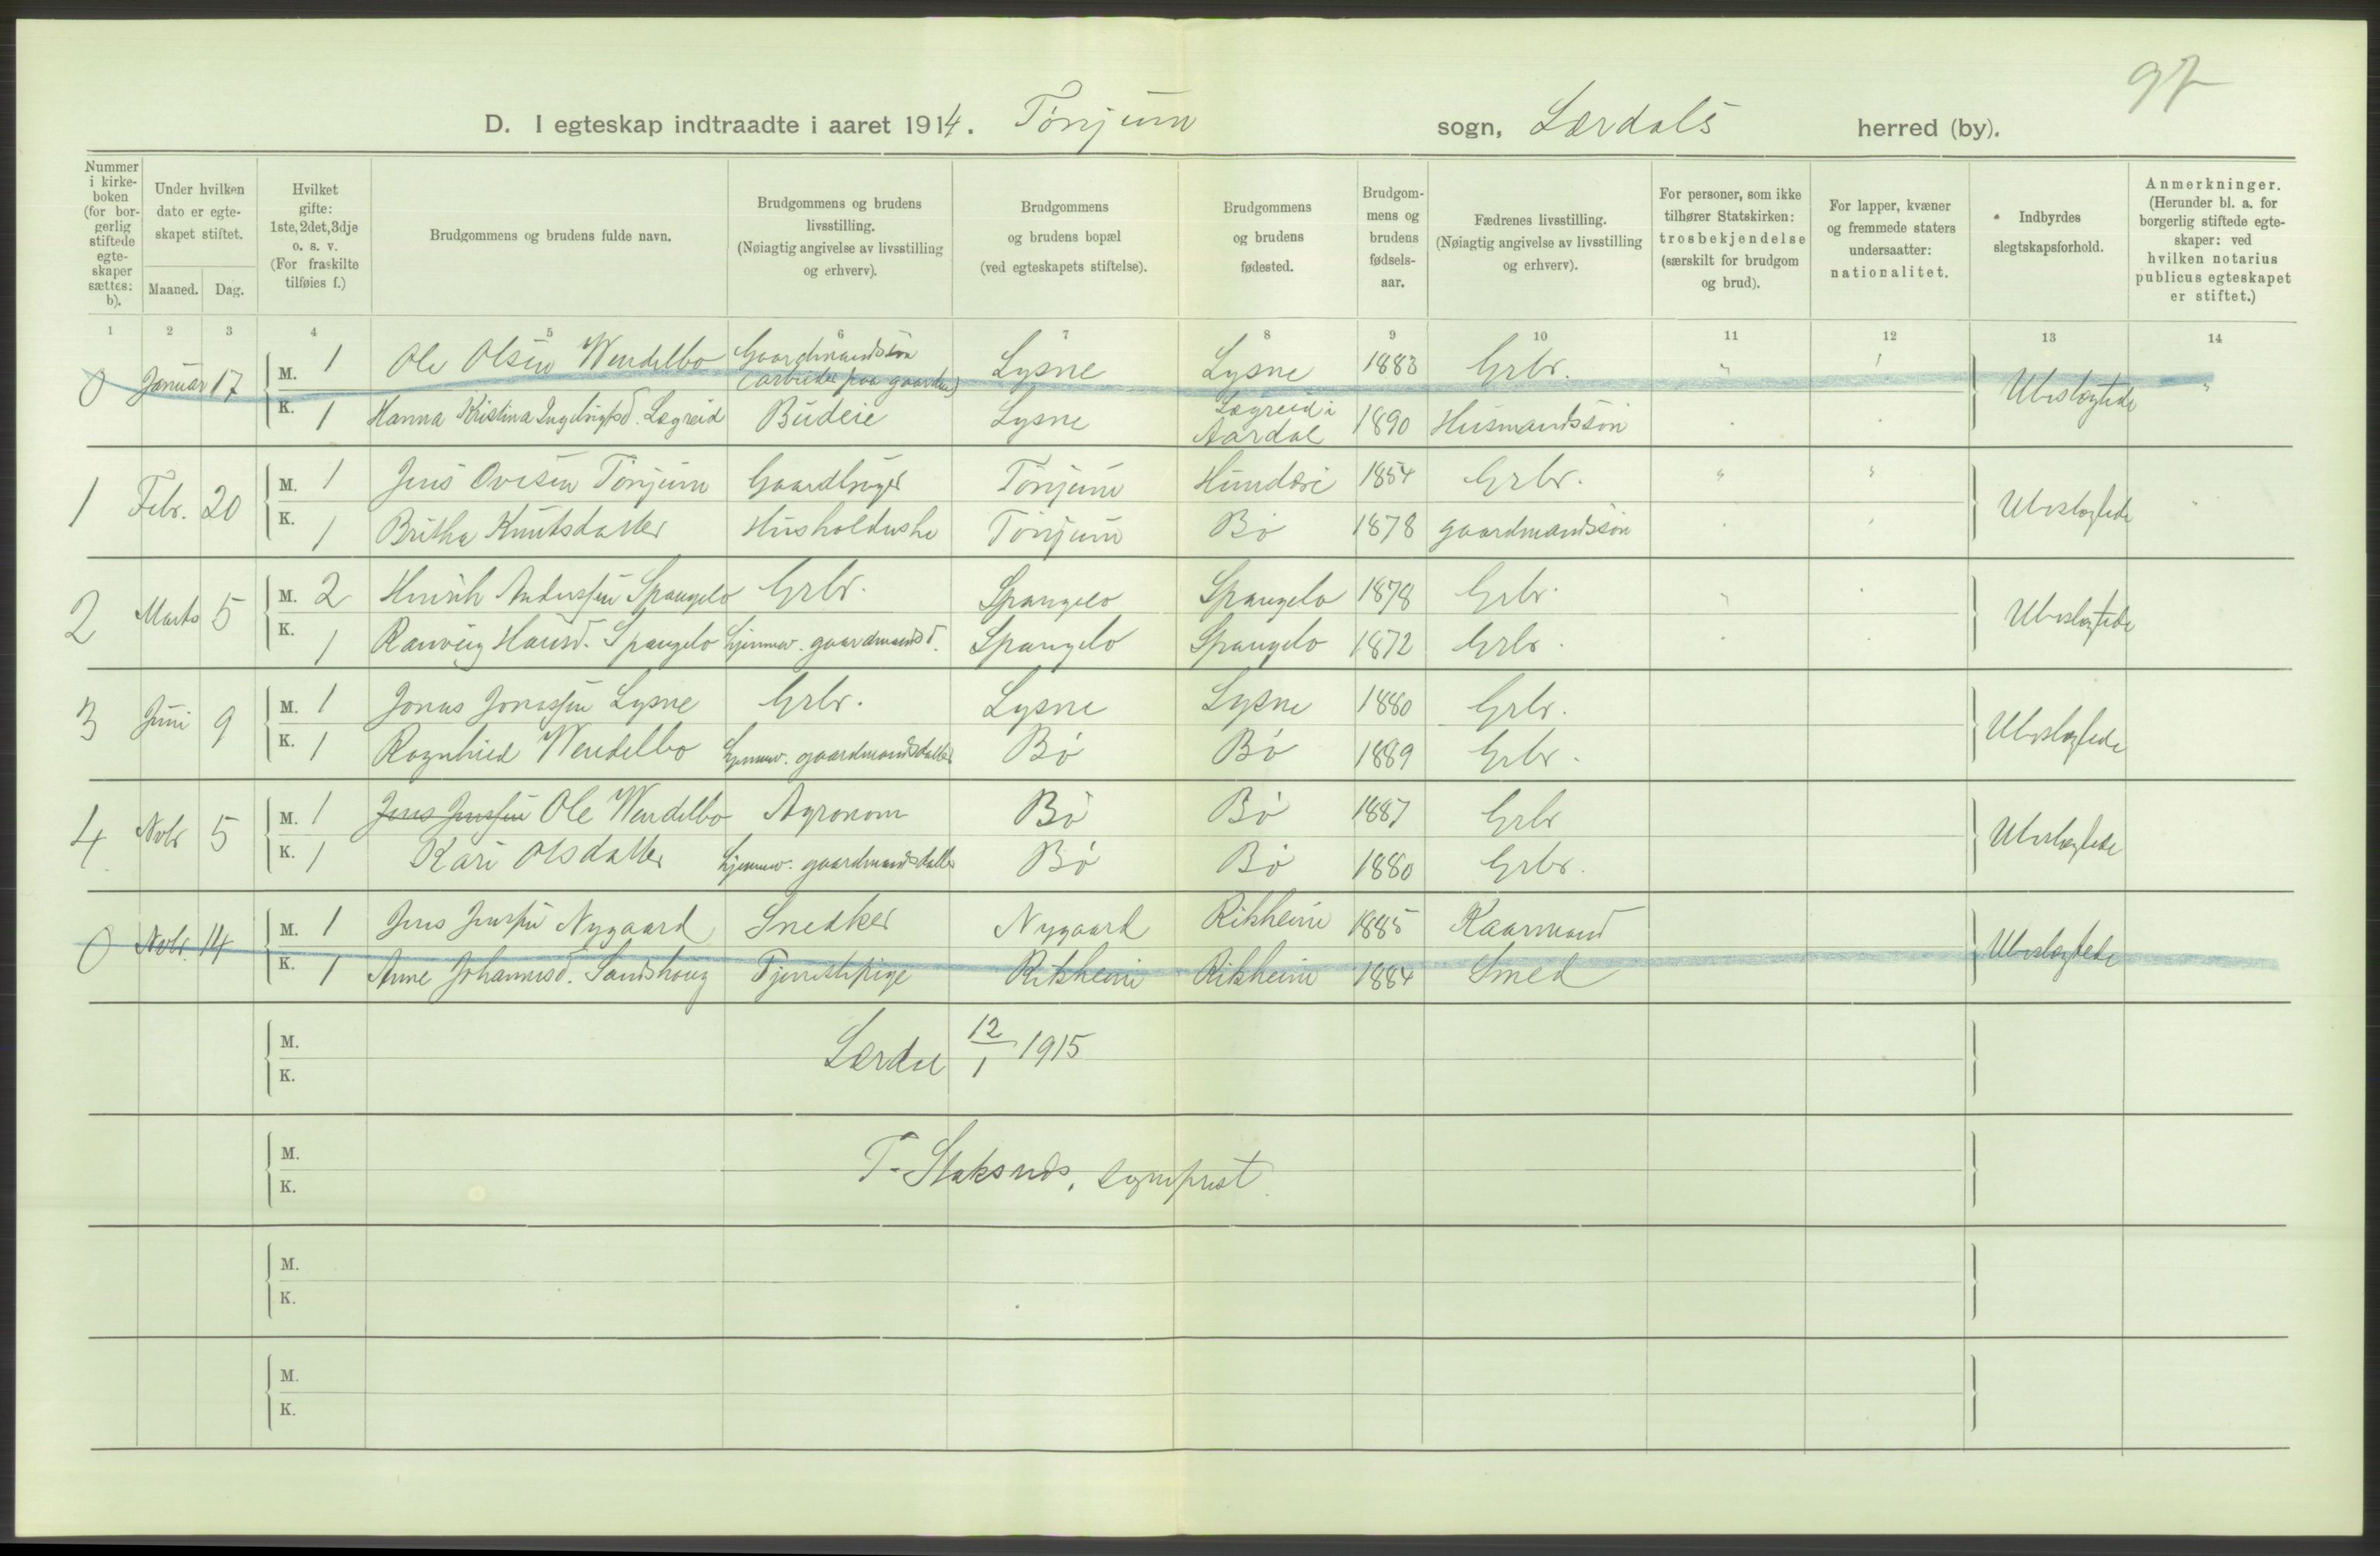 97
D. I egteskap indtraadte i aaret 1914. Tønjum sogn, Lærdals herred (by).
Nummer i kirke-boken (for bor-gerlig stiftede egte-skaper sættes: b).
Under hvilken dato er egte-skapet stiftet.
Maaned. Dag.
Hvilket gifte: 1ste, 2det, 3dje o. s. v. (For fraskilte tilføies f.)
Brudgommens og brudens fulde navn.
Brudgommens og brudens livsstilling. (Nøiagtig angivelse av livsstilling og erhverv).
Brudgommens og brudens bopæl (ved egteskapets stiftelse).
Brudgommens og brudens fødested.
Brudgom-mens og brudens fødsels-aar.
Fædrenes livsstilling. (Nøiagtig angivelse av livsstilling og erhverv).
For personer, som ikke tilhører Statskirken: trosbekjendelse (særskilt for brudgom og brud).
For lapper, kvæner og fremmede staters undersaatter: nationalitet.
Indbyrdes slegtskapsforhold.
Anmerkninger. (Herunder bl. a. for borgerlig stiftede egte-skaper: ved hvilken notarius publicus egteskapet er stiftet.)
1 2 3 4 5 6 7 8 9 10 11 12 13 14
0 Januar 17 M. 1 Ole Olsen Wendelbo Gaardmandssøn (arbeider paa gaarden) Lysne Lysne 1883 Grbr. " " Ubeslægtede "
K. 1 Hanna Kristina Ingebrigtsd. Lægreid Budeie Lysne Lægreid i Aardal 1890 Husmandssøn
1 Febr. 20 M. 1 Jens Ovesen Tønjum Gaardbruger Tønjum Hunderi 1854 Grbr. " " Ubeslægtede "
K. 1 Britha Knutsdatter Husholderske Tønjum Bø 1878 gaardmandssøn
2 Marts 5 M. 2 Henrik Anderssen Spangelo Grbr. Spangelo Spangelo 1878 Grbr. Ubeslægtede
K. 1 Ranveig Hansd. Spangelo hjemmev. gaardmandsd. Spangelo Spangelo 1872 Grbr.
3 Juni 9 M. 1 Jonas Jonassen Lysne Grbr. Lysne Lysne 1880 Grbr. Ubeslægtede
K. 1 Ragnhild Wendelbo hjemmev. gaardmandsdatter Bø Bø 1889 Grbr.
4 Novbr 5 M. 1 Jens Jenssen Ole Wendelbo Agronom Bø Bø 1887 Grbr Ubeslægtede
K. 1 Kari Olsdatter hjemmev. gaardmandsdatter Bø Bø 1880 Grbr.
0 Novbr. 14 M. 1 Jens Jenssen Nygaard Snedker Nygaard Rikheim 1885 Kaarmand Ubeslægtede
K. 1 Anne Johannesd. Sandshoug Tjenestepige Rikheim Rikheim 1884 Smed
M. Lærdal 12/1 1915
K.
M. T. sogneprest
K.
M.
K.
M.
K.